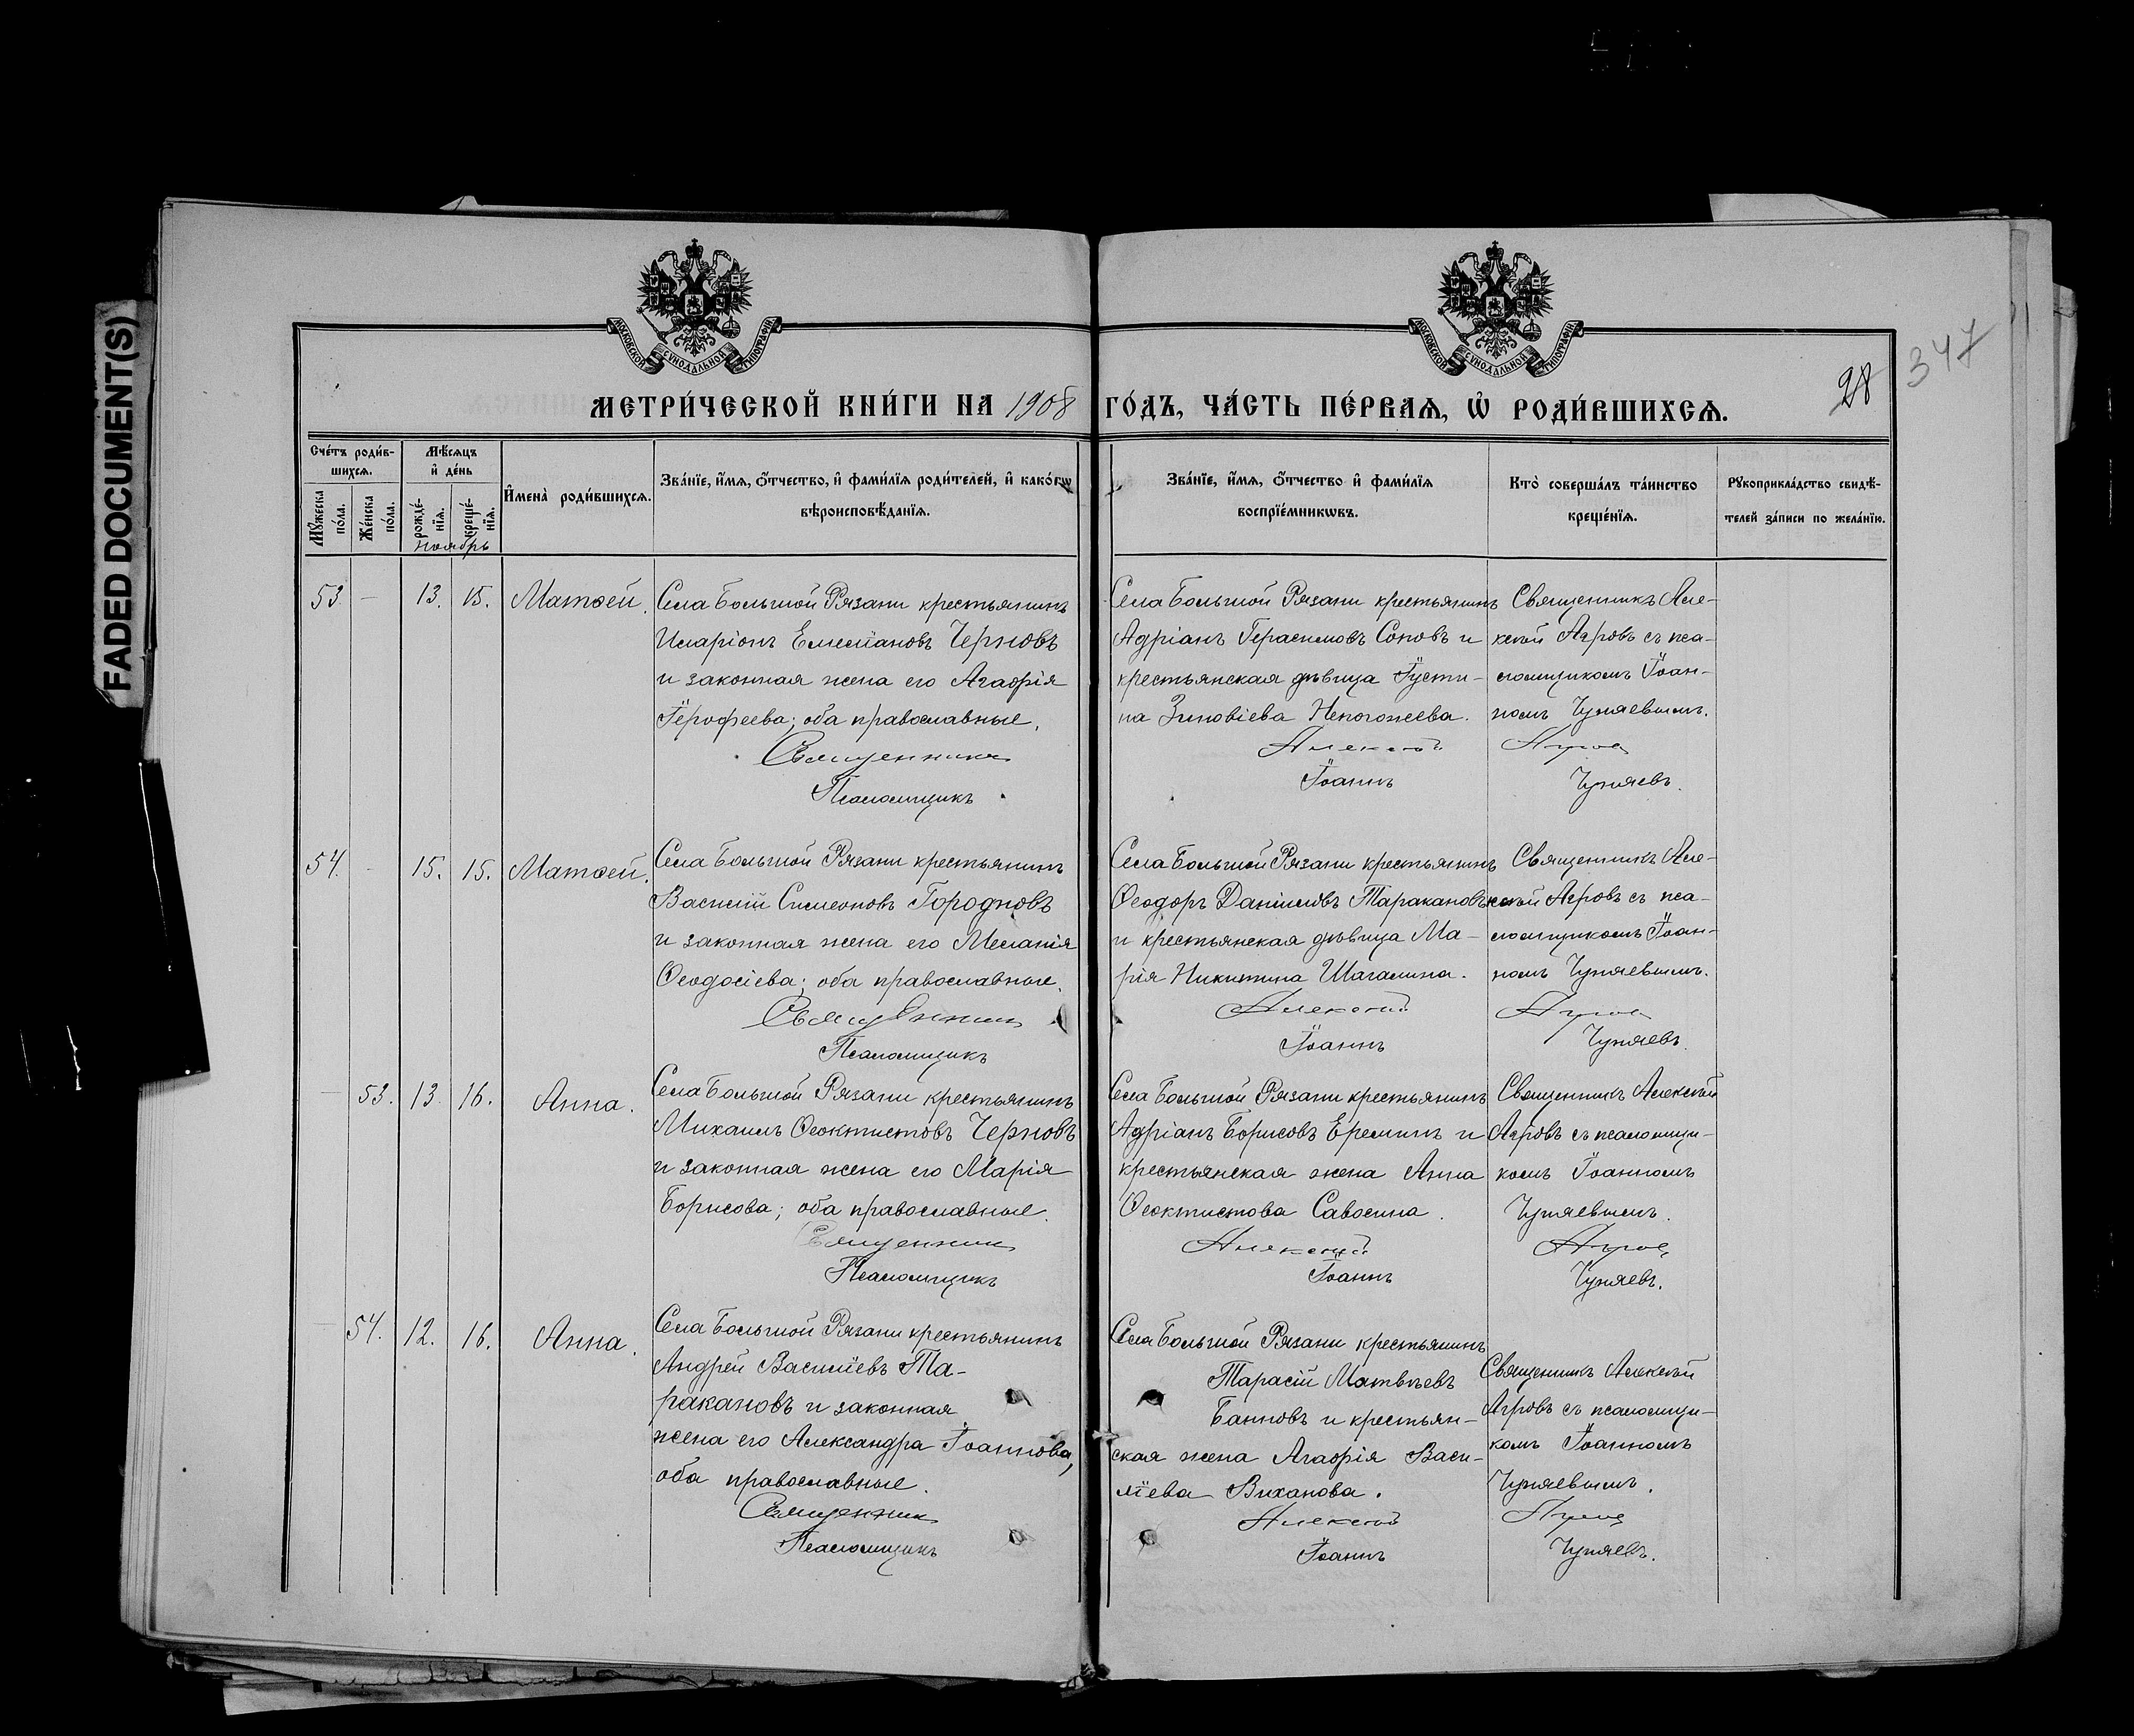 FADED DOCUMENT(S)
МОСКОВСКОЙ СѴНОДАЛЬНОЙ ТИПОГРАФІИ
МОСКОВСКОЙ СѴНОДАЛЬНОЙ ТИПОГРАФІИ
28
347
МЕТРИ́ЧЕСКОЙ КНИ́ГИ НА 1908 ГО́ДЪ, ЧА́СТЬ ПЕ́РВАѦ, Ѡ҆ РОДИ́ВШИХСѦ.
Сче́тъ роди́в-
шихсѧ.
Мꙋжеска по́ла.
Же́нска по́ла.
Мѣ́сѧцъ
и҆ де́нь
рожде́-
нїѧ.
креще́-
нїѧ.
ноябрь
И҆мена̀ роди́вшихсѧ.
Зва́нїе, и҆́мѧ, ѻ҆́тчество, и҆ фами́лїѧ роди́телей, и҆ како́гѡ
вѣроисповѣ́данїѧ.
Зва́нїе, и҆́мѧ, ѻ҆́тчество и҆ фами́лїѧ
воспрїе́мникѡвъ.
Кто̀ соверша́лъ та́инство
креще́нїѧ.
Рꙋкоприкла́дство свидѣ́-
телей за́писи по жела́нїю.
53. – 13. 15. Матѳей.
Села Большой Рязани крестьянинъ
Иларіонъ Емеліановъ Черновъ
и законная жена его Агаѳія
Іерофеева; оба православные.
Священникъ
Псаломщикъ
Села Большой Рязани крестьянинъ
Адріанъ Герасимовъ Соновъ и
крестьянская дѣвица Іусти-
на Зиновіева Непогожеева.
Алексій
Іоаннъ
Священникъ Але-
ксій Агровъ съ пса-
ломщикомъ Іоан-
номъ Чуняевымъ.
Агров
Чуняевъ.
54. - 15. 15. Матѳей.
Села Большой Рязани крестьянинъ
Василій Симеоновъ Городновъ
и законная жена его Меланія
Ѳеодосіева; оба православные.
Священник
Псаломщикъ
Села Большой Рязани крестьянинъ
Ѳеодоръ Даніиловъ Таракановъ
и крестьянская дѣвица Ма-
рія Никитина Шагалина.
Алексій
Іоаннъ
Священникъ Але-
ксій Агровъ съ пса-
ломщикомъ Іоан-
номъ Чуняевымъ.
Агров
Чуняевъ.
– 53. 13. 16. Анна.
Села Большой Рязани крестьянинъ
Михаилъ Ѳеоктистовъ Черновъ
и законная жена его Марія
Борисова; оба православные.
Священник
Псаломщикъ
Села Большой Рязани крестьянинъ
Адріанъ Борисовъ Ереминъ и
крестьянская жена Анна
Ѳеоктистова Савосина.
Алексій
Іоаннъ
Священникъ Алексій
Агровъ съ псаломщи-
комъ Іоанномъ
Чуняевымъ.
Агров
Чуняевъ.
– 54. 12. 16. Анна.
Села Большой Рязани крестьянинъ
Андрей Василіевъ Та-
ракановъ и законная
жена его Александра Іоаннова,
оба православные.
Священник
Псаломщикъ
Села Большой Рязани крестьянинъ
Тарасій Матвѣевъ
Банновъ и крестьян-
ская жена Агаѳія Васи-
ліева Виханова.
Алексій
Іоаннъ
Священникъ Алексій
Агровъ съ псаломщи-
комъ Іоанномъ
Чуняевымъ.
Агров
Чуняевъ.